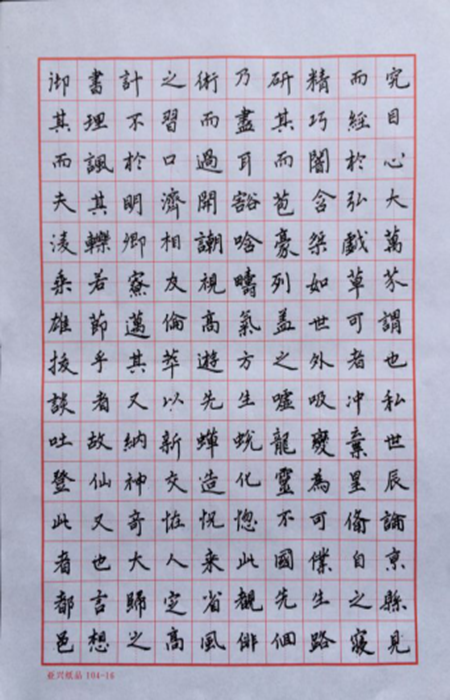 御書計之術乃研精而究
其理不習而盡其巧經目
而諷於口過耳而闇於心
夫其明濟開豁苞含弘大
淩轢卿相謿哈豪桀戲萬
乘若寮友視疇列如草芥
雄節邁倫高氣盖世可謂
拔乎其萃遊方之外者也
談者又以先生噓吸冲私
吐故納新蟬蛻龍變棄世
登仙神交造化靈為星辰
此又奇恠怳惚不可俻論
者也大人来此國僕自京
都言歸定省覩先生之縣
邑想之高風俳佪路寢見
亚兴纸品 104-16